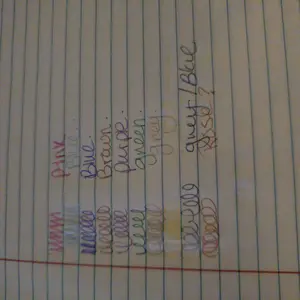 Pink
Blue.
Brown.
purpe.
green.
grey.
grey/Blue
Rose?